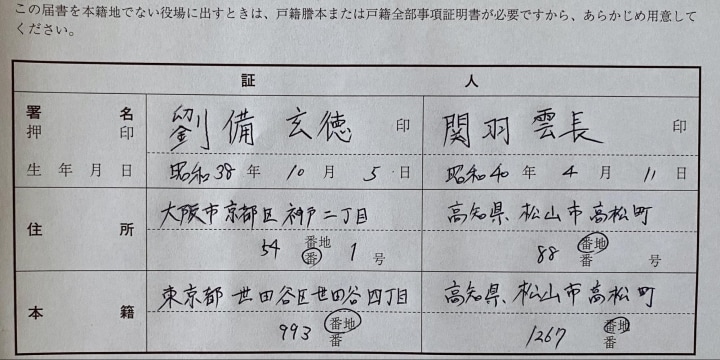 この届書を本籍地でない役場に出すときは、戸籍謄本または戸籍全部事項証明書が必要ですから、あらかじめ用意して
ください。
証人
署名 劉備 玄徳 関羽 雲長
押印 印 印
生年月日 昭和38年 10月 5日 昭和40年 4月 11日
住所 大阪市京都区神戸二丁目 高知県、松山市高松町
54 番地 番 1 号 88 番地 番 号
本籍 東京都 世田谷区世田谷四丁目 高知県、松山市高松町
993 番地 番 1267 番地 番